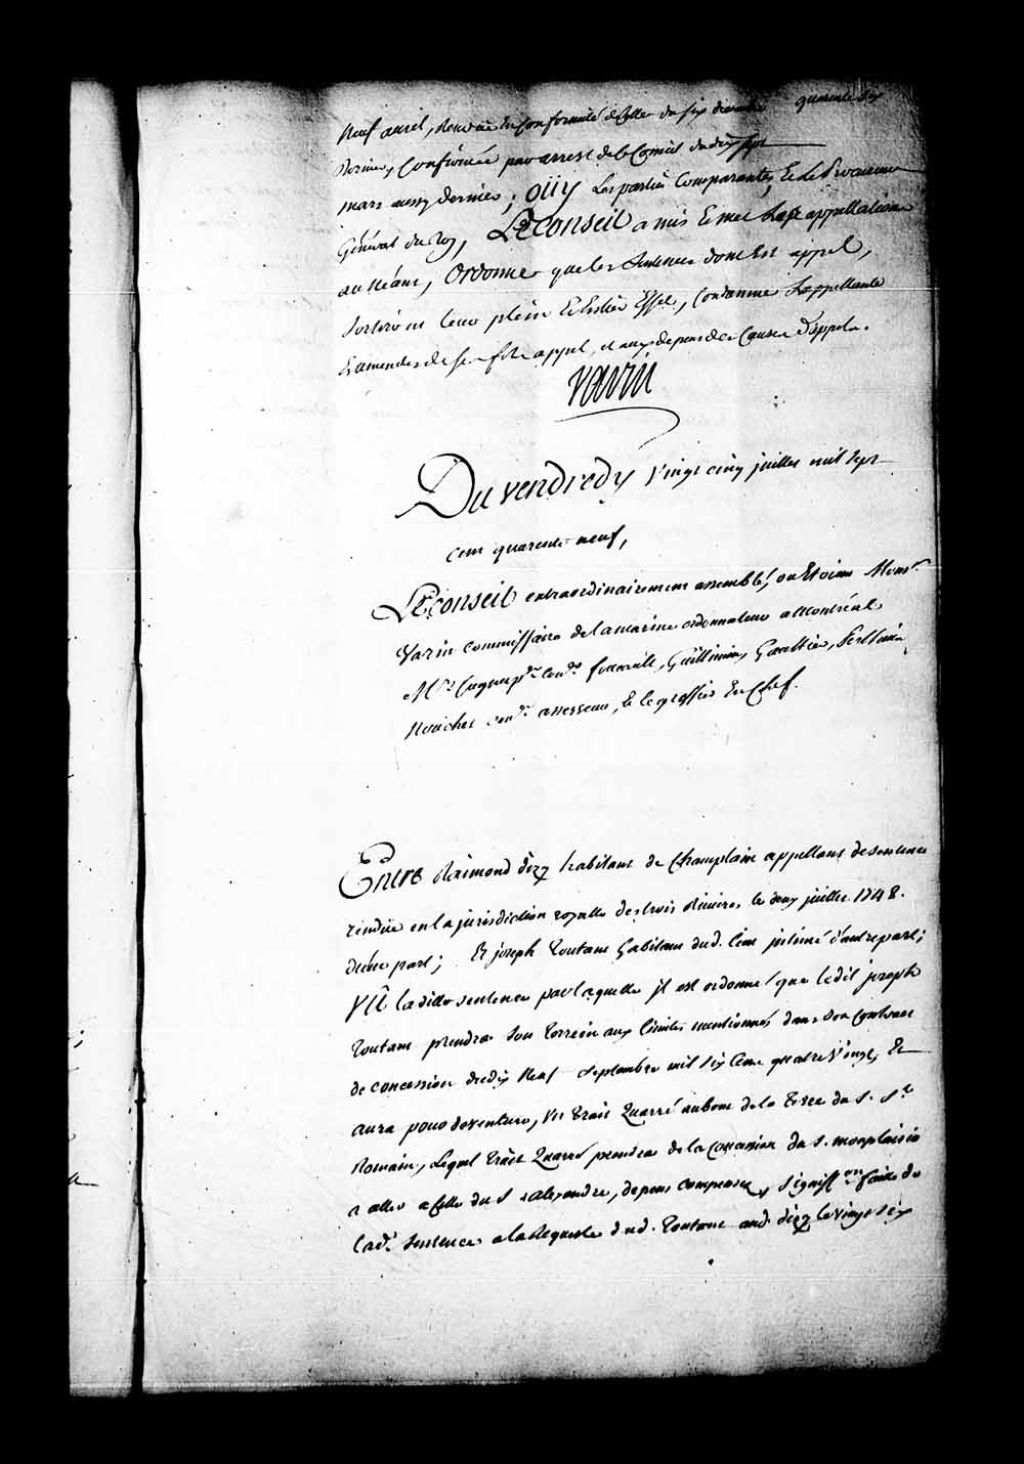 neuf avril, rendüe en conformité de celle du six quarente six
dernier, confirmée par arrest de ce Conseil du dix sept
mars aussy dernier; oüy Les parties Comparantes, Et Le Procureur
Général du Roy, LE Conseil a mis Et met appellations
au néant, Ordonne que les Sentences dont Est appel,
Sortiront leur plein Et Entier Effet, Condamne L'appellante
Es amendes de fol appel, et aux depens de la Cause d'appel.
Varin
Du vendredy vingt cinq juillet mil sept
cent quarente neuf,
LE Conseil extraordinairement assemblé, ou Etoient Monsr.
Varin commissaire de la marine ordonnateur a Montréal
Mrs Cugnet pr. Conr. foucault, Guillimin, Gaultier,
Nouchet conr. assesseur, & le greffier En Chef.
Entre Raimond dizy habitant de Champlain appellant de sentence
rendüe en la jurisdiction royalle des trois Rivieres le deux juillet 1748.
d'une part; Et joseph Toutant habitant dud. lieu intimé d'autre part;
VÛ la ditte sentence par laquelle jl est ordonné que ledit joseph
Toutant prendra son terrein aux limites mentionnés dans son Contract
de concession du dix neuf septembre mil six Cent quatre vingt, Et
aura pour devanture, un trait quarré au bout de la terre du S. St.
Romain, Lequel trait quarré prendra de la Concession du S. monplaisir
a aller a celle du S alexandre, depens compensez, Signiffon. faite de
lad. Sentence a la Requeste dud. Toutant aud. dizy le vingt six